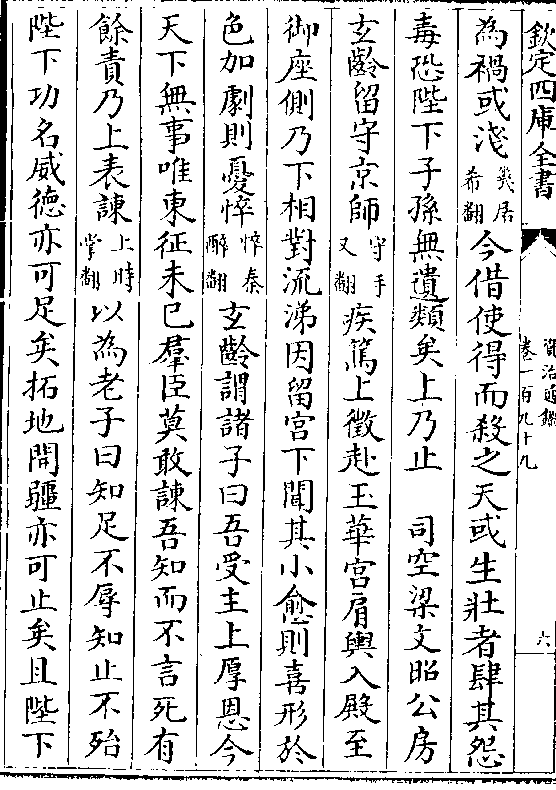 欽定四庫全書
資治通鑑
卷一百九十九
六
為禍或淺幾居希翻今借使得而殺之天或生壯者肆其怨
毒恐陛下子孫無遺類矣上乃止 司空梁文昭公房
玄齡留守京師守手又翻疾篤上徵赴玉華宮肩輿入殿至
御座側乃下相對流涕因留宮下聞其小愈則喜形於
色加劇則憂悴悴秦醉翻玄齡謂諸子曰吾受主上厚恩今
天下無事唯東征未已羣臣莫敢諫吾知而不言死有
餘責乃上表諫上時掌翻以為老子曰知足不辱知止不殆
陛下功名威德亦可足矣拓地開疆亦可止矣且陛下